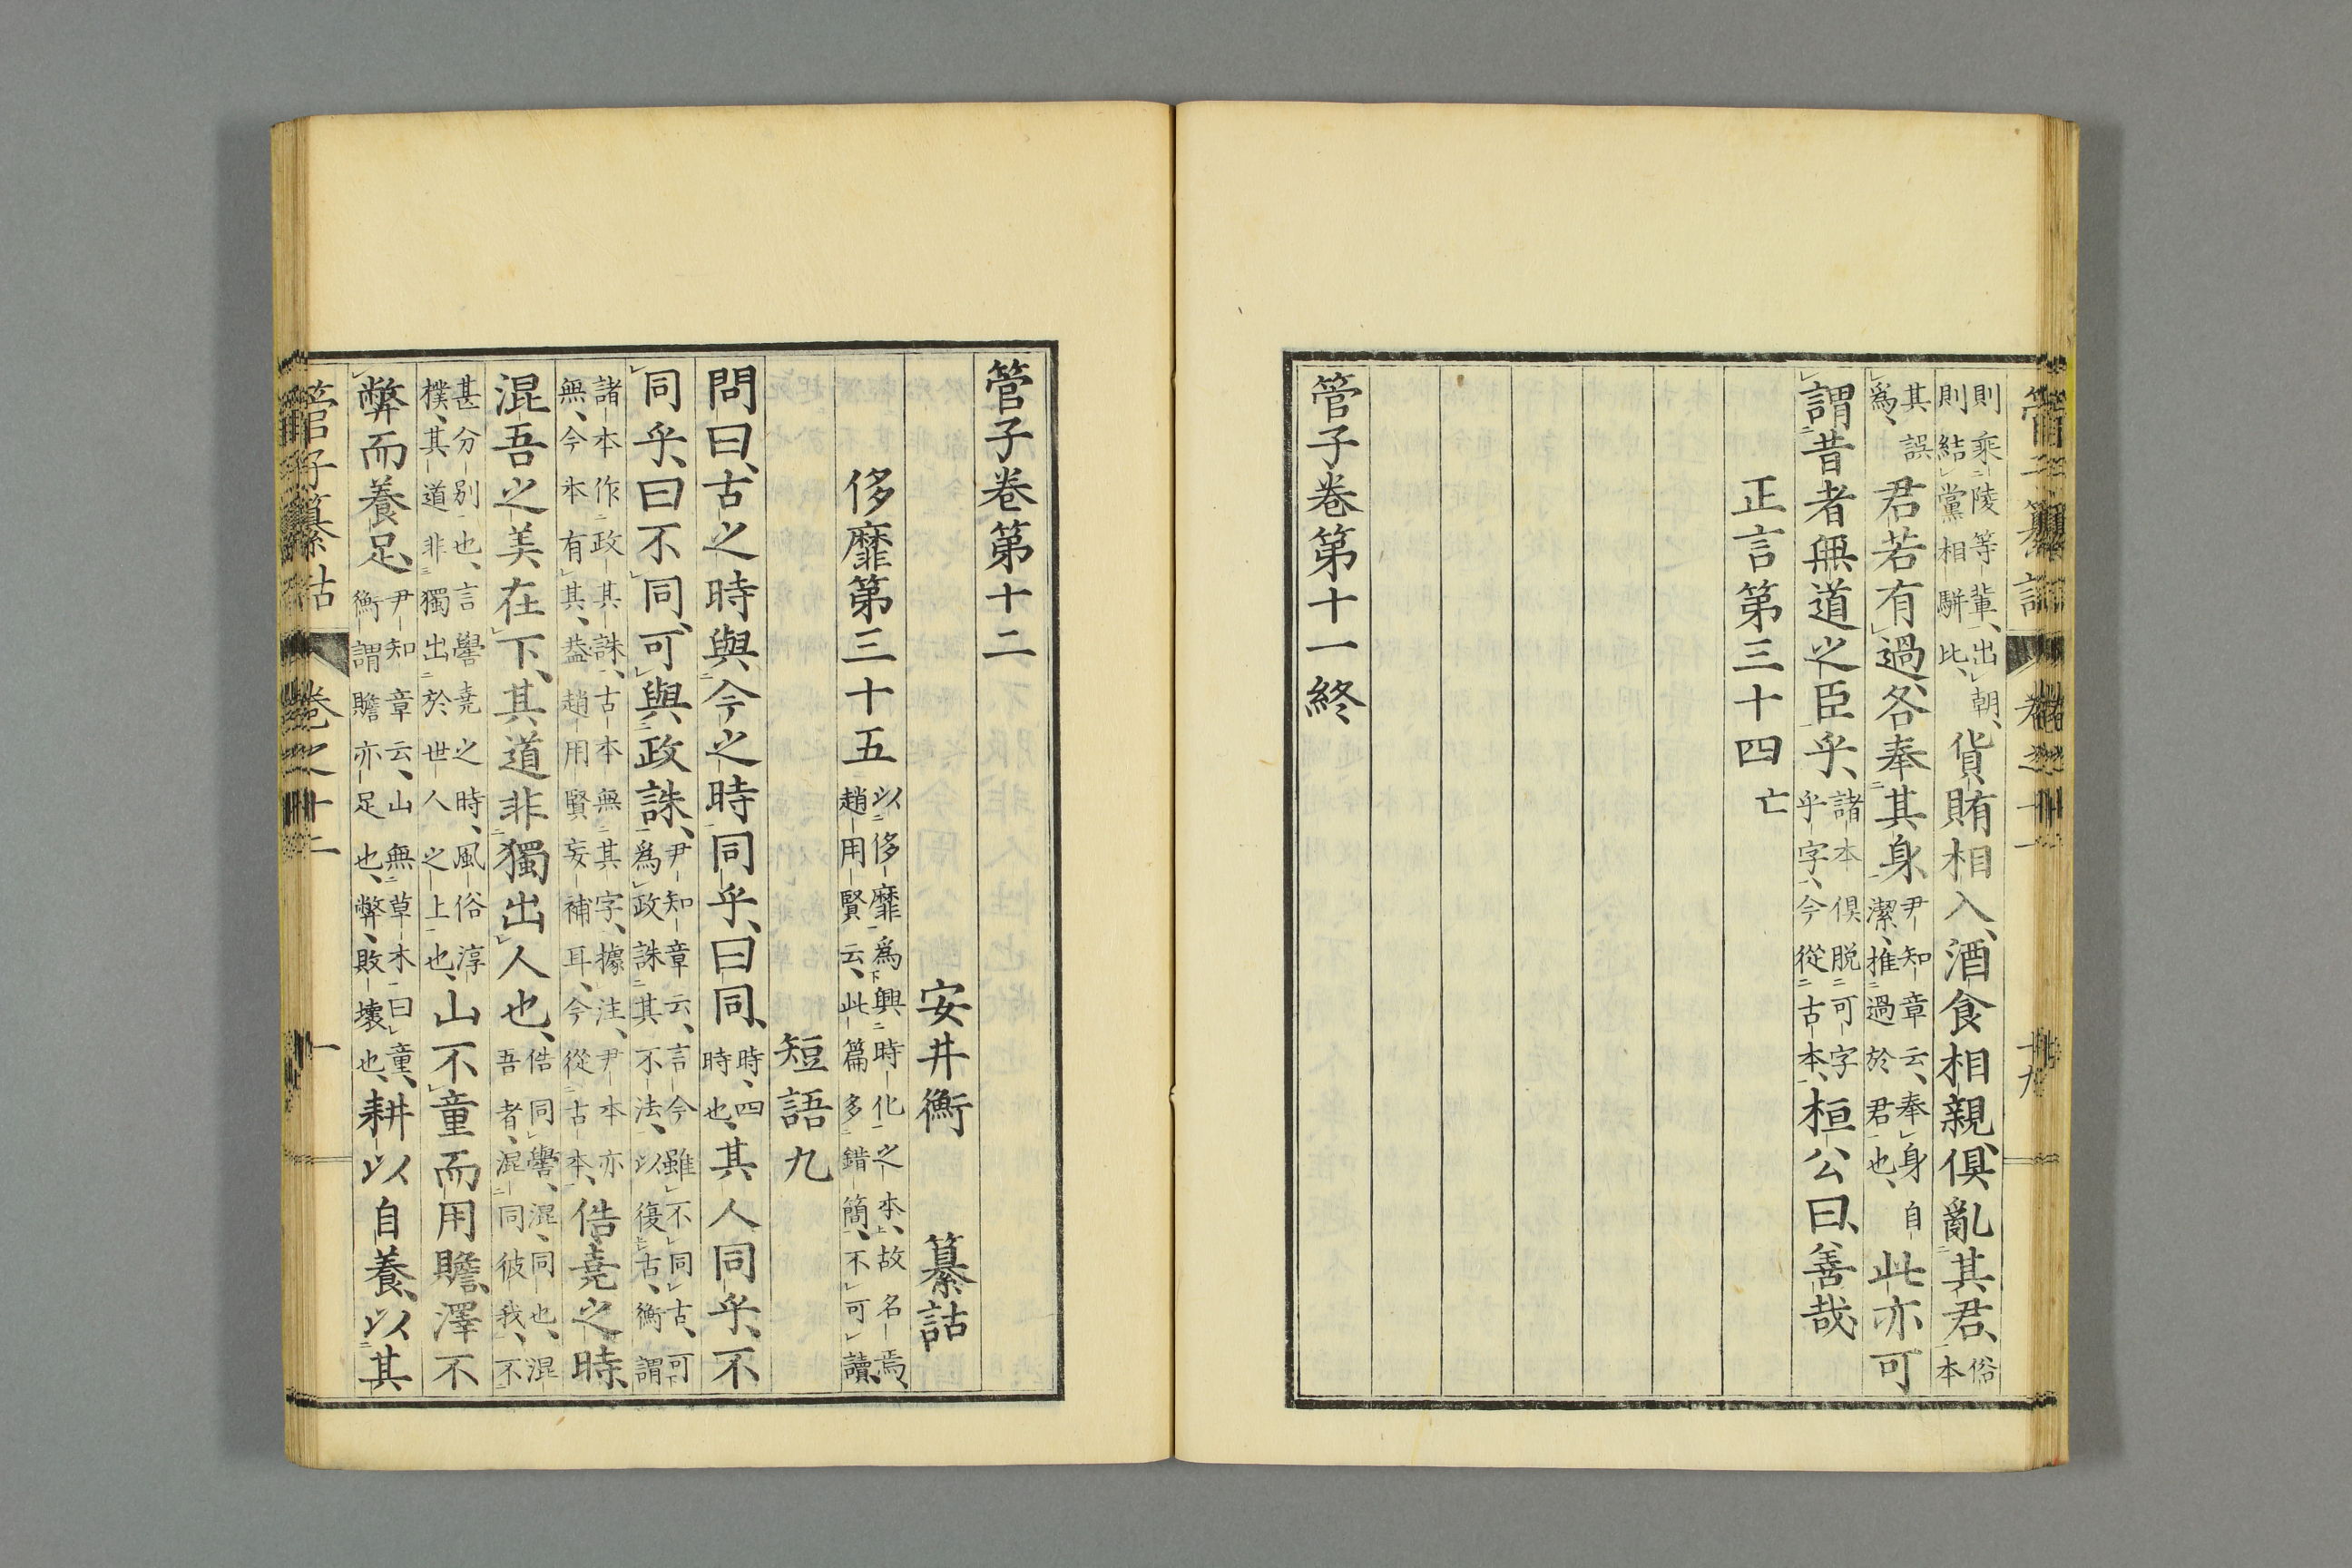 管子纂詁 卷之十一 十九
則乘陵等輩、出朝、則結黨相駢比、貨賄相入、酒食相親、俱亂其君、俗本
其誤爲、君若有過、各奉其身尹知章云、奉身自潔、推過於君也、此亦可
謂昔者無道之臣乎、諸本俱脱可字乎字、今從古本、桓公曰、善哉
正言第三十四 亡
管子卷第十一終
管子卷第十二
安井衡 纂詁
侈靡第三十五 以侈靡爲興時化之本、故名焉、趙用賢云、此篇多錯簡、不可讀、
短語九
問曰、古之時與、今之時同乎、曰同、時、四時也、其人同乎、不
同乎、曰不同、可與、政誅、尹知章云、言今雖不同古、可爲政誅其不法、以復古、衡謂
諸本作政其誅、古本無其字、據注、尹本亦無、今本有其、蓋趙用賢妄補耳、今從古本、俈堯之時、
混吾之美在下、其道非獨出人也、俈同嚳、混、同也、混吾者、混同彼我、不
甚分別也、言嚳堯之時、風俗淳樸、其道非獨出於世人之上也、山不童而用贍、澤不
弊而養足、尹知章云、山無草木曰童、衡謂贍亦足也、弊、敗壞也、耕以自養、以其
管子纂詁 卷之十二 一